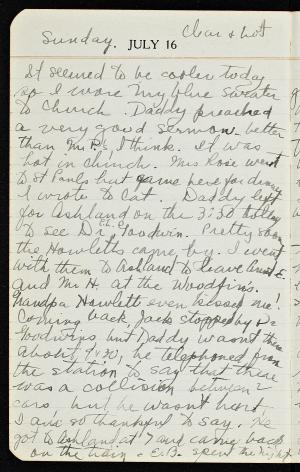 Sunday.
Clear & hot
JULY 16
It seemed to be cooler today
so I wore my blue sweater
to church. Daddy preached
a very good sermon, better
than Mr. P's, I think. It was
hot in church. Mrs Rose went
to St Pauls but came here for dinner
I wrote to Cat. Daddy left
for Ashland on the 3:30 trolley
to see Dr. Goodwin. Pretty soon
the Howletts came by. I went
with them to Ashland to leave
and Mr H. at the Woodfins.
Grandpa Howlett even kissed me!
Coming back, Jack stopped by Dr
Goodwins, but Daddy wasn't there
About 9:30, he telephoned from
the station to say that there
was a collision between 2
cars, but he wasn't hurt,
I am so thankful to say. He
got to Ashland at 7 and came back
on the train. E.B. spent the night